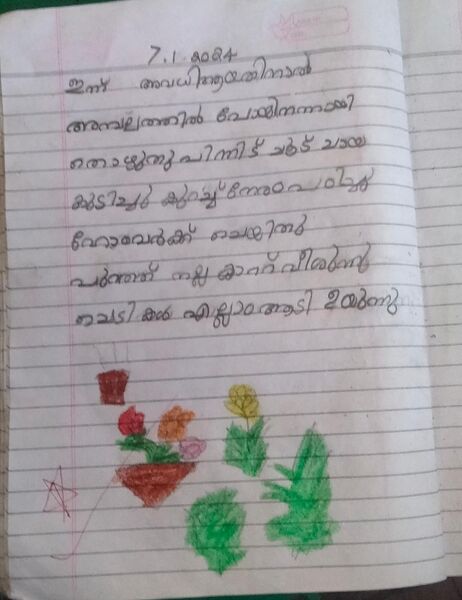 7.1.2024
ഇന്ന് അവധിആയതിനാൽ
അമ്പലത്തിൽ പോയിനന്നായി
തൊഴുതു പിന്നീട് ചൂട് ചായ
കുടിച്ചു കുറച്ച് നേരം പഠിച്ചു
ഹോംവർക്ക് ചെയ്തു
പുറത്ത് നല്ല കാറ്റ് വീശുന്നു
ചെടികൾ എല്ലാം ആടി ഉയുന്നു